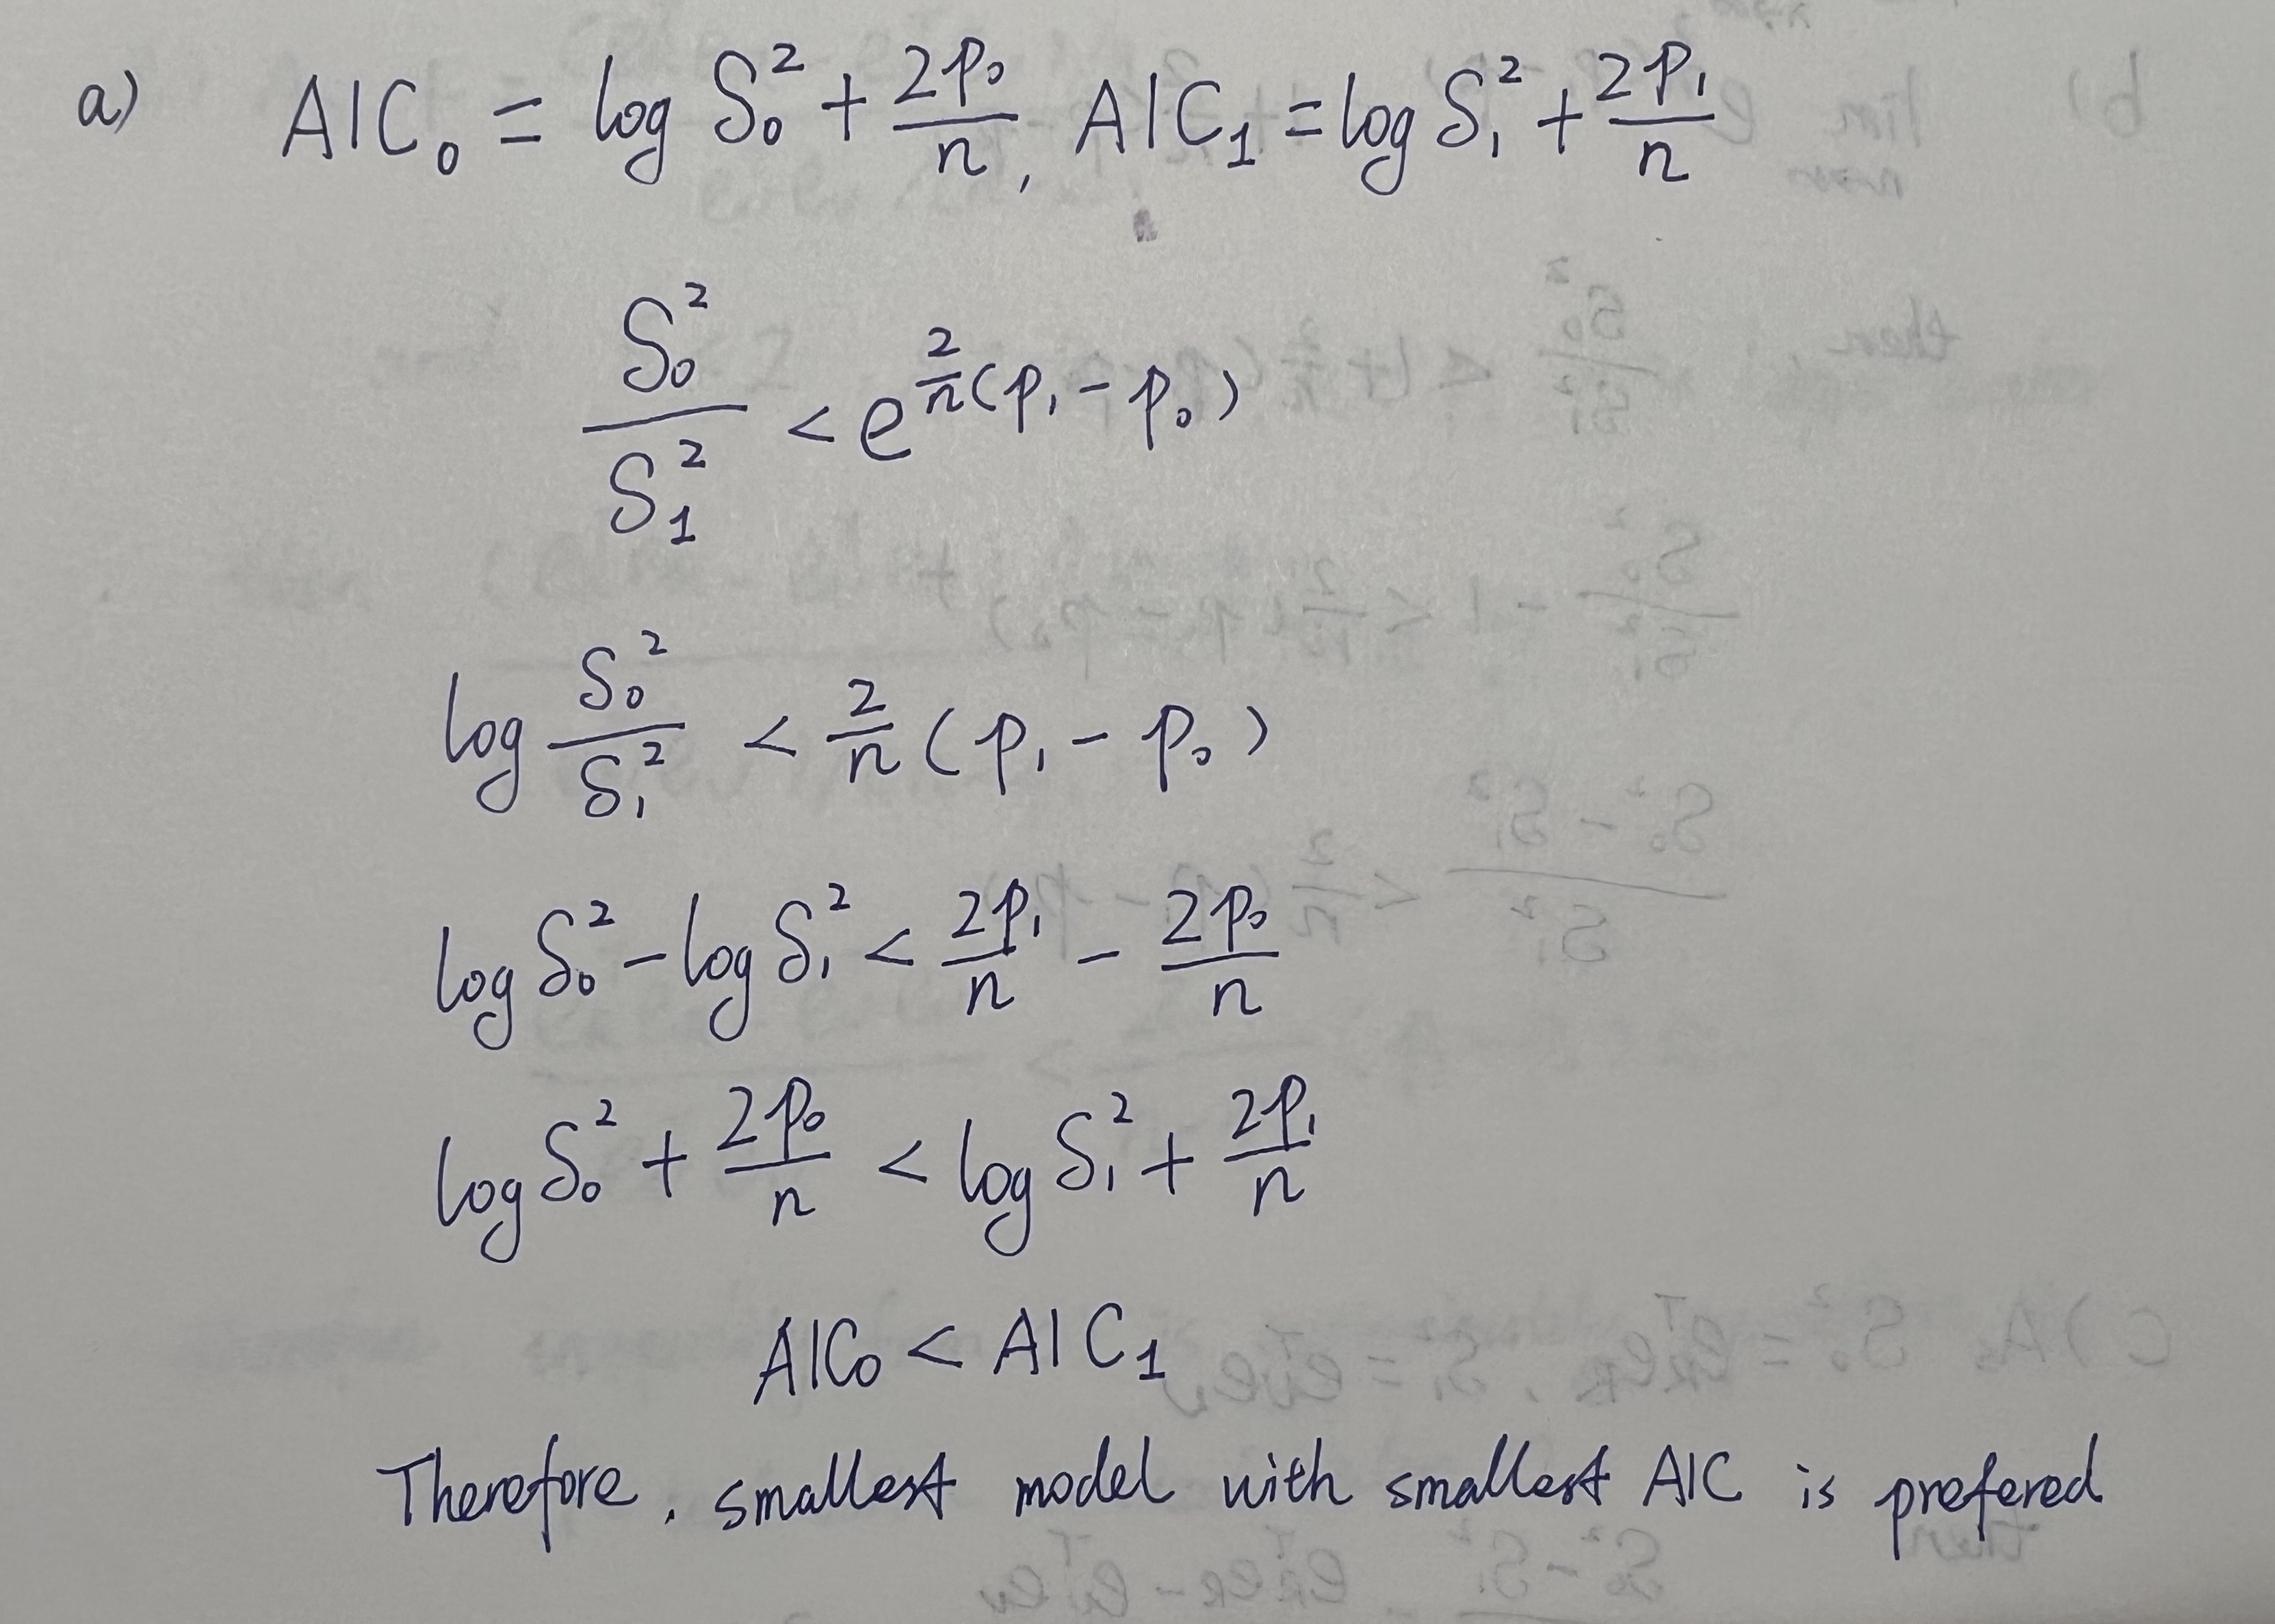 a) AIC₀ = log S₀² + 2p₀/n, AIC₁ = log S₁² + 2p₁/n
S₀²/S₁² < e^(2/n (p₁ - p₀))
log S₀²/S₁² < 2/n (p₁ - p₀)
log S₀² - log S₁² < 2p₁/n - 2p₀/n
log S₀² + 2p₀/n < log S₁² + 2p₁/n
AIC₀ < AIC₁
Therefore, smallest model with smallest AIC is prefered